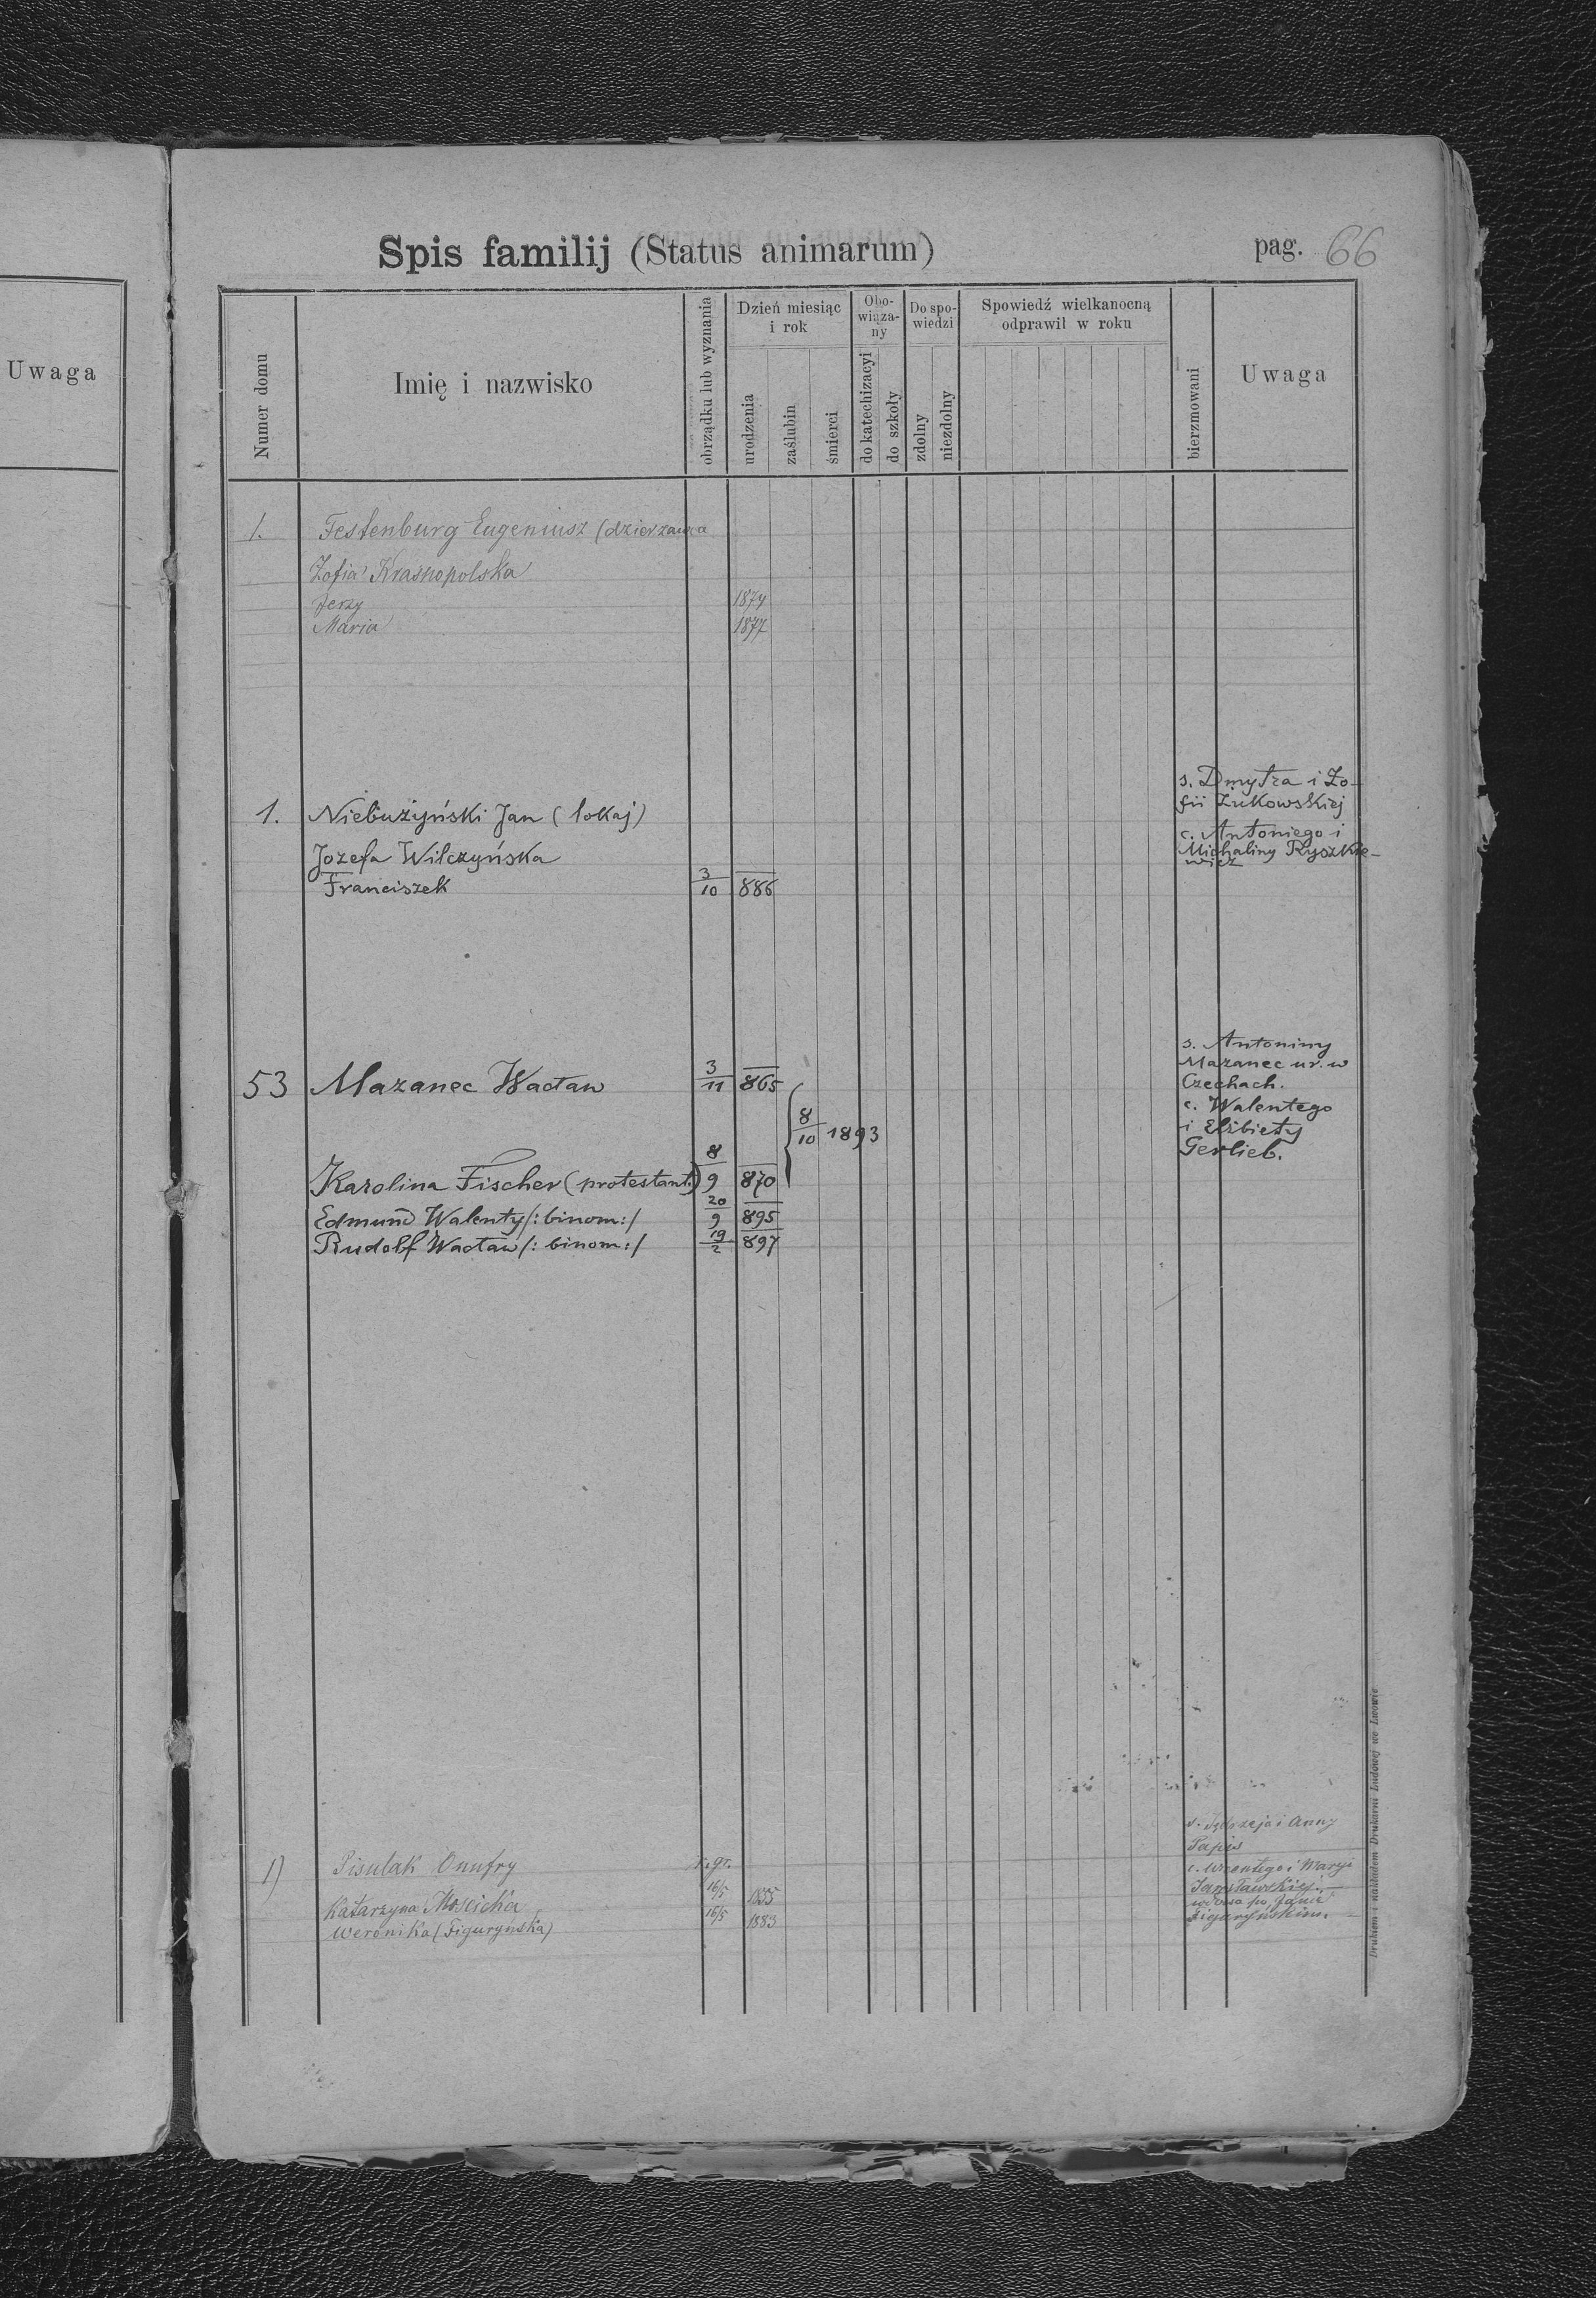 Uwaga
Spis familij (Status animarum)
pag. 66
Numer domu
Imię i nazwisko
obrządku lub wyznania
Dzień miesiąc
i rok
urodzenia
zaślubin
śmierci
Obo-
wiąza-
ny
do katechizacyi
do szkoły
Do spo-
wiedzi
zdolny
niezdolny
Spowiedź wielkanocną
odprawił w roku
bierzmowani
Uwaga
1. Festenburg Eugeniusz (dzierzawca
Zofia Krasnopolska
Jerzy 1874
Maria 1877
s. Dmytra i Zo-
fii Żukowskiej
1. Niebużyński Jan (lokaj)
c. Antoniego i
Michaliny Ryszkie-
wicz
Jozefa Wilczyńska
Franciszek 3/10 886
s. Antoniny
Mazanec ur. w
Czechach.
53 Mazanec Wacław 3/11 865
8/10 1893
c. Walentego
i Elżbiety
Gerlieb.
Karolina Fischer (protestant.) 8/9 870
Edmund Walenty /: binom:/ 20/9 895
Rudolf Wacław /: binom:/ 19/2 897
s. Jędrzeja i Anny
1) Pisulak Onufry r. gr.
c. i Maryi
Jarosławskiej.
Katarzyna 16/5 1855
wdowa po Janie
Figuryńskim.
Weronika (Figuryńska) 16/5 1883
Drukiem i nakładem Drukarni Ludowej we Lwowie